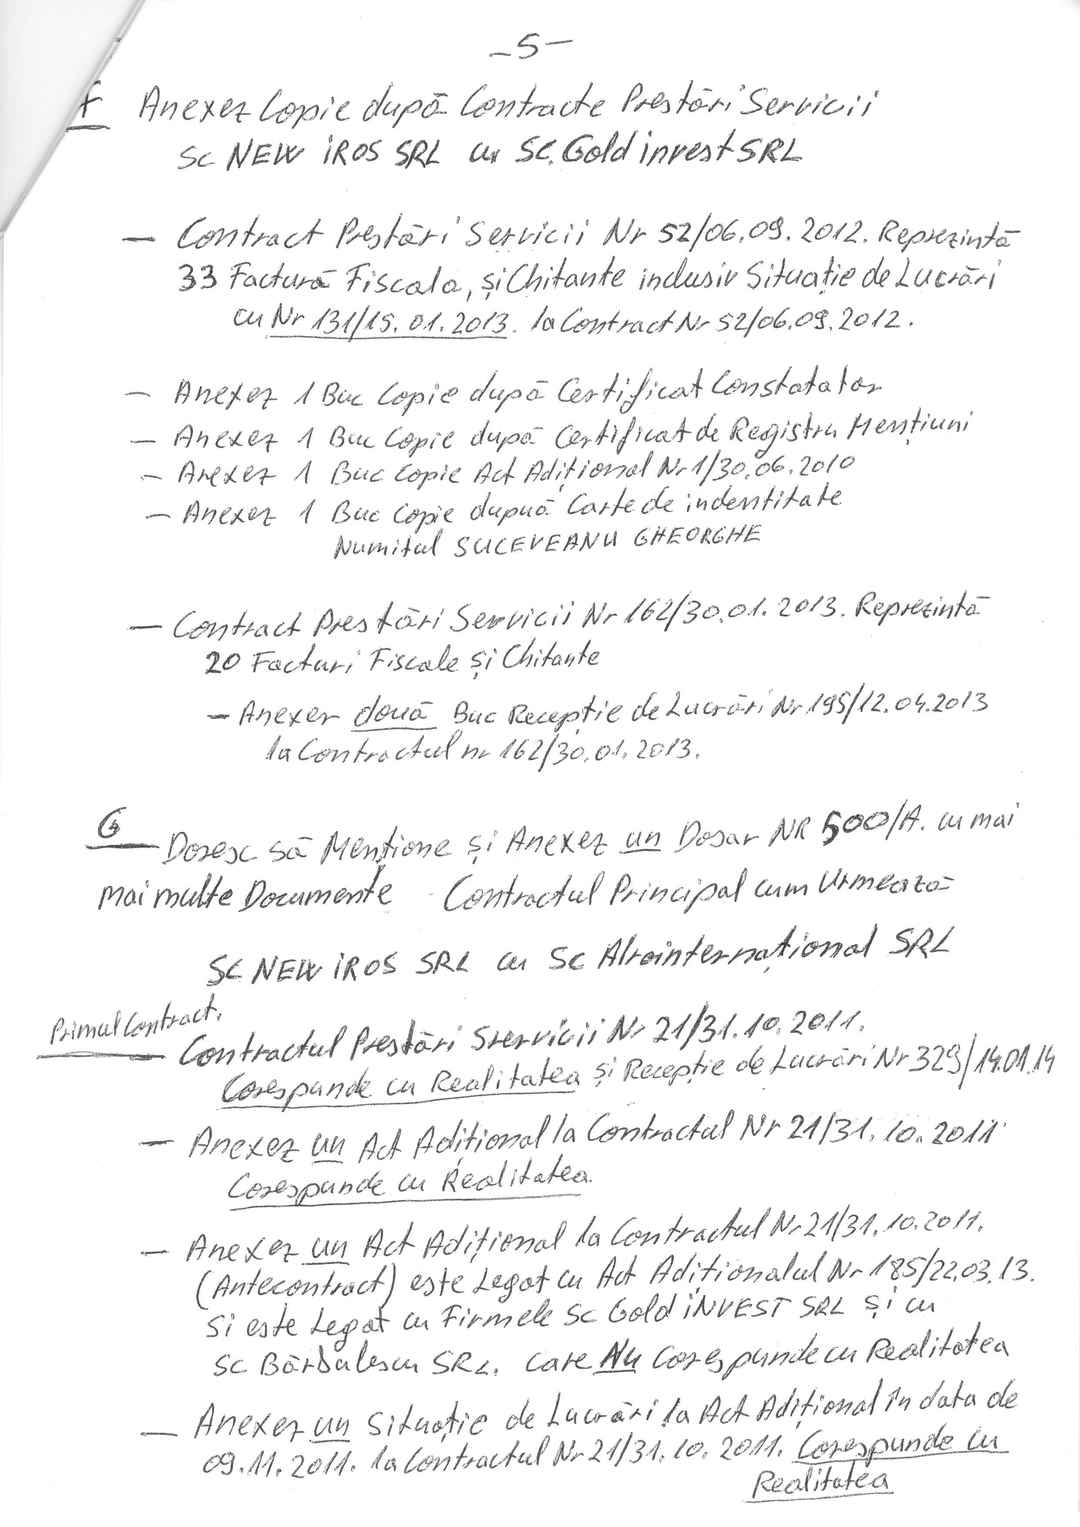 -5-
F Anexez Copie după Contracte Prestări Servicii
SC NEW iROS SRL cu SC. Gold invest SRL
- Contract Prestări Servicii Nr 52/06.09.2012. Reprezintă
33 Factură Fiscala, și Chitante inclusiv Situație de Lucrări
cu Nr 131/15.01.2013. la Contract Nr 52/06.09.2012.
- Anexez 1 Buc Copie după Certificat Constatator
- Anexez 1 Buc Copie după Certificat de Registru Mențiuni
- Anexez 1 Buc Copie Act Adițional Nr 1/30.06.2010
- Anexez 1 Buc Copie dupuă Carte de indentitate
Numitul SUCEVEANU GHEORGHE
- Contract Prestări Servicii Nr 162/30.01.2013. Reprezintă
20 Facturi Fiscale și Chitante
- Anexez două Buc Recepție de Lucrări Nr 195/12.04.2013
la Contractul nr 162/30.01.2013.
G
- Doresc să Mențione și Anexez un Dosar NR 500/A. cu mai
mai multe Documente Contractul Principal cum Urmează
SC NEW iROS SRL cu SC Alrointernațional SRL
Primul Contract.
- Contractul Prestări Srervicii Nr 21/31.10.2011.
Corespunde cu Realitatea și Recepție de Lucrări Nr 329/14.01.14
- Anexez un Act Adițional la Contractul Nr 21/31.10.2011
Corespunde cu Realitatea.
- Anexez un Act Adițional la Contractul Nr 21/31.10.2011.
(Antecontract) este Legat cu Act Adiționalul Nr 185/22.03.13.
Si este Legat cu Firmele SC Gold iNVEST SRL și cu
SC Bărbulescu SRL. care Nu Corespunde cu Realitatea
- Anexez un Situație de Lucrări la Act Adițional în data de
09.11.2011. la Contractul Nr 21/31.10.2011. Corespunde cu
Realitatea